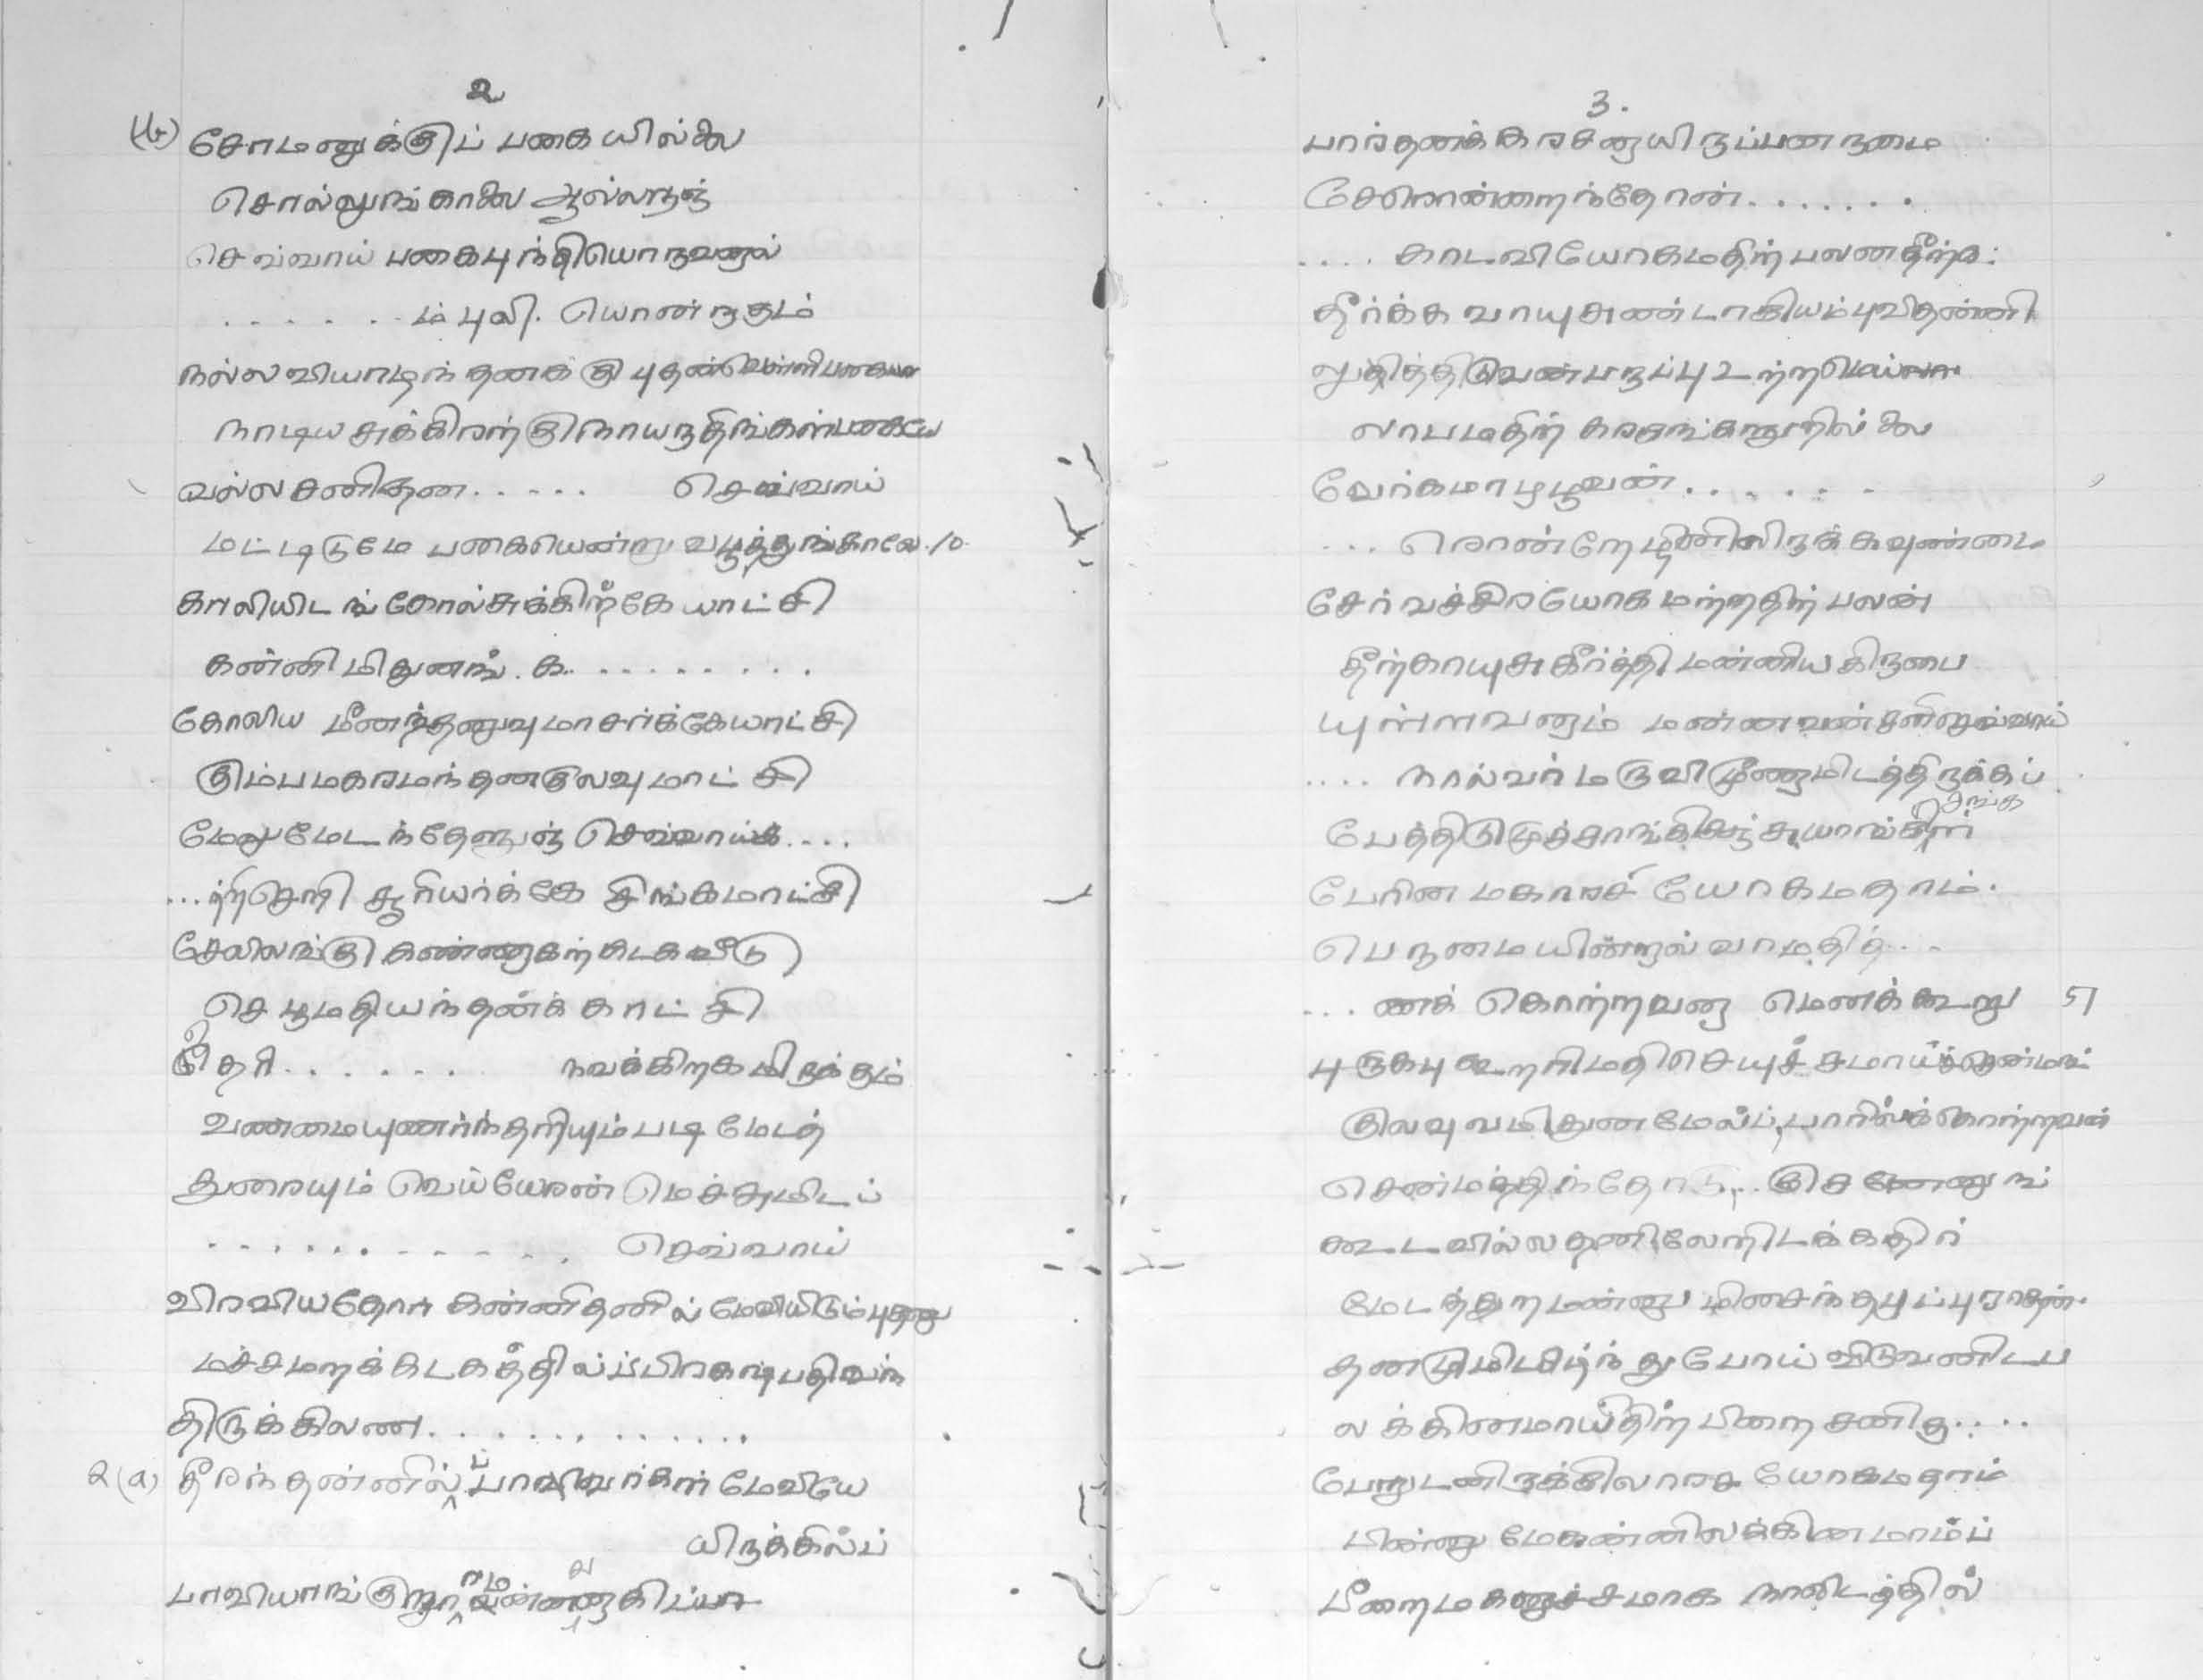 ௨
(b) சோமனுக்குப் பகையில்லை
சொல்லுங்காலை ஆல்லாநஞ்
செவ்வாய் பகைபுந்தியொருவனால்
. . . . . . ம் புவி. யொன்றாகும்
நல்ல வியாழந் தனக்கு புதன்வெள்ளிபகையா
நாடிய சுக்கிரற்கு நாயறுதிங்கள்பகையே
வல்ல சனிதன . . . . . செவ்வாய்
மட்டிடுமே பகையென்று வழுத்துங்காலே. 10
காவியிடங்கோல்சுக்கிரற்கே யாட்சி
கன்னி மிதுனங். க. . . . . . . . .
கோலிய மீனந்தனுவுமாசர்க்கேயாட்சி
கும்பமகரமந்தனகுலவுமாட்சி
மேலுமேடந்தேளுஞ் செவ்வாய்க் . . . .
. . . ற்றிசெறி சூரியர்க்கே சிங்கமாட்சி
சேலிலங்கு கண்ணாகற் கடகவீடு
செழுமதியந்தனக் காட்சி
தேரி . . . . . . நவக்கிறகமிருக்கும்
வண்மையுணர்ந்தரியும்படி மேடத்
துரையும் வெய்யோன் மெச்சுமிடப்
. . . . . . . . . . . . . செவ்வாய்
விரவியதோர் கன்னிதனில் மேவியிடும்புதனு
மச்சமறக்கடகத்தில்ப்பிரகஷ்பதிவந்
திருக்கிலண . . . . . . . . . . . . .
2(a) தீரந்தன்னில் ப்பாவிவர்கள் மேவியே
யிருக்கில்ப்
பாவியாங்குறா
3.
பார்தனக்கரசனாயிருப்பனருமை
சேரொன்றைந்தோன் . . . . . . .
. . . . காடவியோகமதிற்பலனதீற்க:
தீர்க்க வாயுசுண்டாகியம்புவிதன்னி
லுதித்திடுவண்பறப்பு உற்ற
லாபமதிற் கரசுங்களூரில்லை
வேர்கமாமூவன் . . . . . .
. . . ரொன்றேழினிலிருக்கவுண்மை
சேர் வச்சிரயோகமற்றதிற்பலன்
தீற்காயுசுகீர்த்தி மண்ணிய கிருபை
யுள்ளவனும் மன்னவன்சனிசெவ்வாய்
. . . . நால்வர் மருவிமூணுமிடத்திருக்கப்
சங்க
பேரின மகாரசி யோகமதாம்.
பெருமையின்றால் வாழதிந் . . .
. . . ணக் கொற்றவனு மெனக்கூறு 51
புடுகபுகூறரிமதிசெயுச் சமாய்ச்
குலவுவமிதுனமேல்ப்பாரில்க்கொற்றவன்
சென்மத்திந்தோடு . . . குசனேனுங்
கூடவில்லதனிலேறிடக்கதிர்
மேடத்துறமன்னு மிசைந்தமுப்புராசன்.
தனகுமிடிழ்ந்துபோய் விடுவனிடப
லக்கினமாய்திற் பிறை சனிகு . . . .
பேறுடனிருக்கிலாரசு யோகமதாம்
பின்னு மேகன்னிலக்கினமாம்ப்
பீறைமகனுச்சமாக நானிடத்தில்